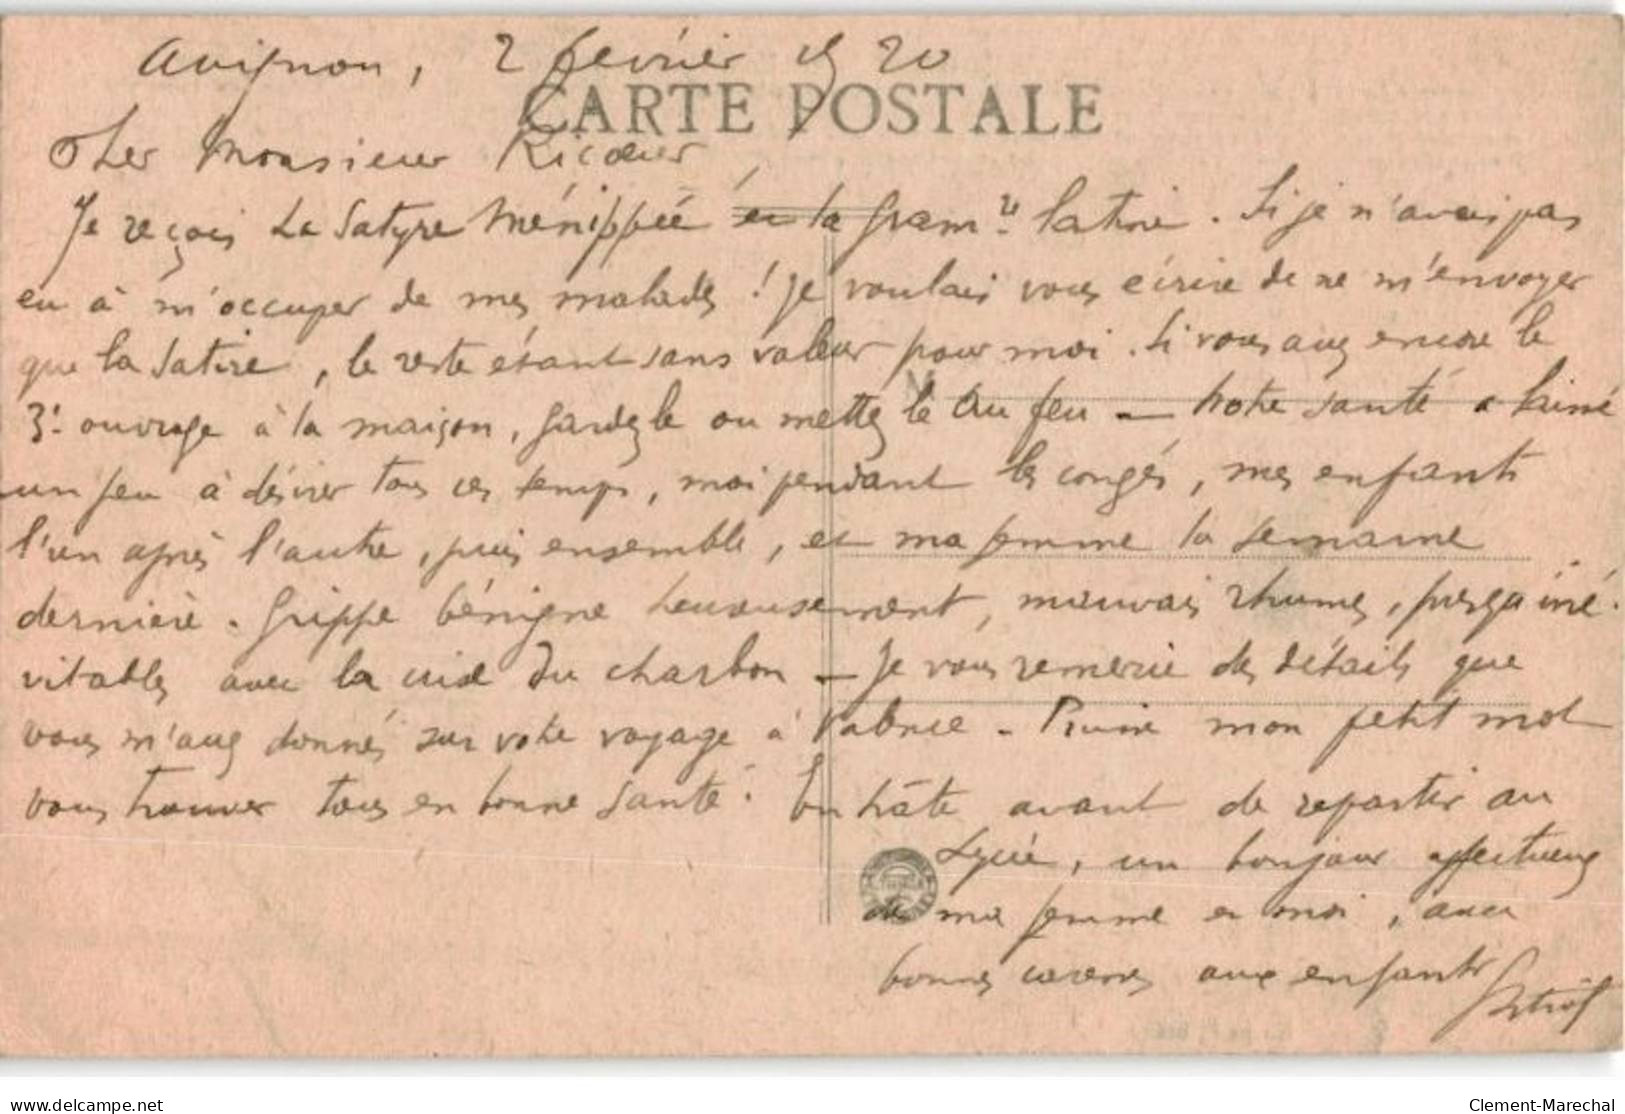 Avignon, 2 février 1920
CARTE POSTALE
Cher Monsieur Ricœur
Je reçois La Satyre Ménippée et la Gram.re latine. Si je n'avais pas
eu à m'occuper de mes malades ! Je voulais vous écrire de ne m'envoyer
que la Satire, le reste étant sans valeur pour moi. Si vous avez encore le
3e ouvrage à la maison, gardez le ou mettez le au feu — Notre santé a laissé
un peu à désirer tous ces temps, moi pendant les congés, mes enfants
l'un après l'autre, puis ensemble, et ma femme la semaine
dernière. Grippe bénigne heureusement, mauvais rhumes, presq iné-
vitables avec la crise du charbon — Je vous remercie des détails que
vous m'avez donnés sur votre voyage à Valence. Puisse mon petit mot
vous trouver tous en bonne santé. En hâte avant de repartir au
Lycée, un bonjour affectueux
de ma femme et moi, avec
bonnes caresses aux enfants
delcampe.net
Clement-Marechal